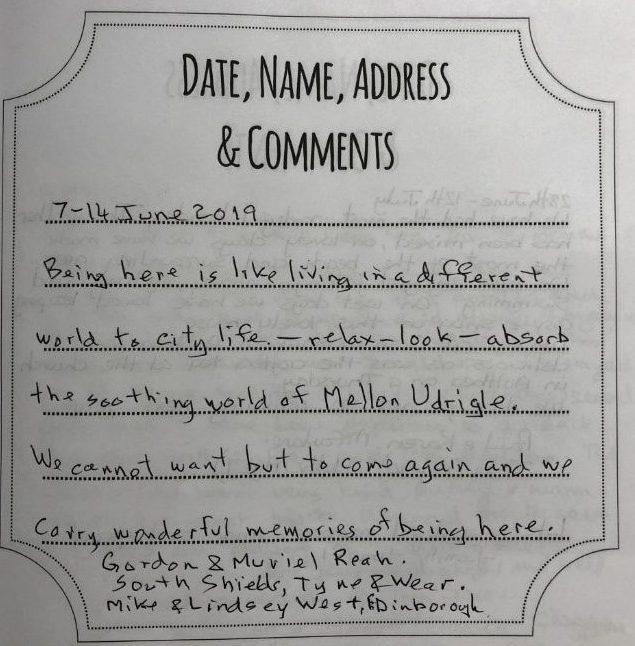 DATE, NAME, ADDRESS
& COMMENTS
7-14 June 2019
Being here is like living in a different
world to city life. - relax - look - absorb
the soothing world of Mellon Udrigle.
We cannot want but to come again and we
carry wonderful memories of being here.
Gordon & Muriel Reah.
South Shields, Tyne & Wear.
Mike & Lindsey West, Edinborough